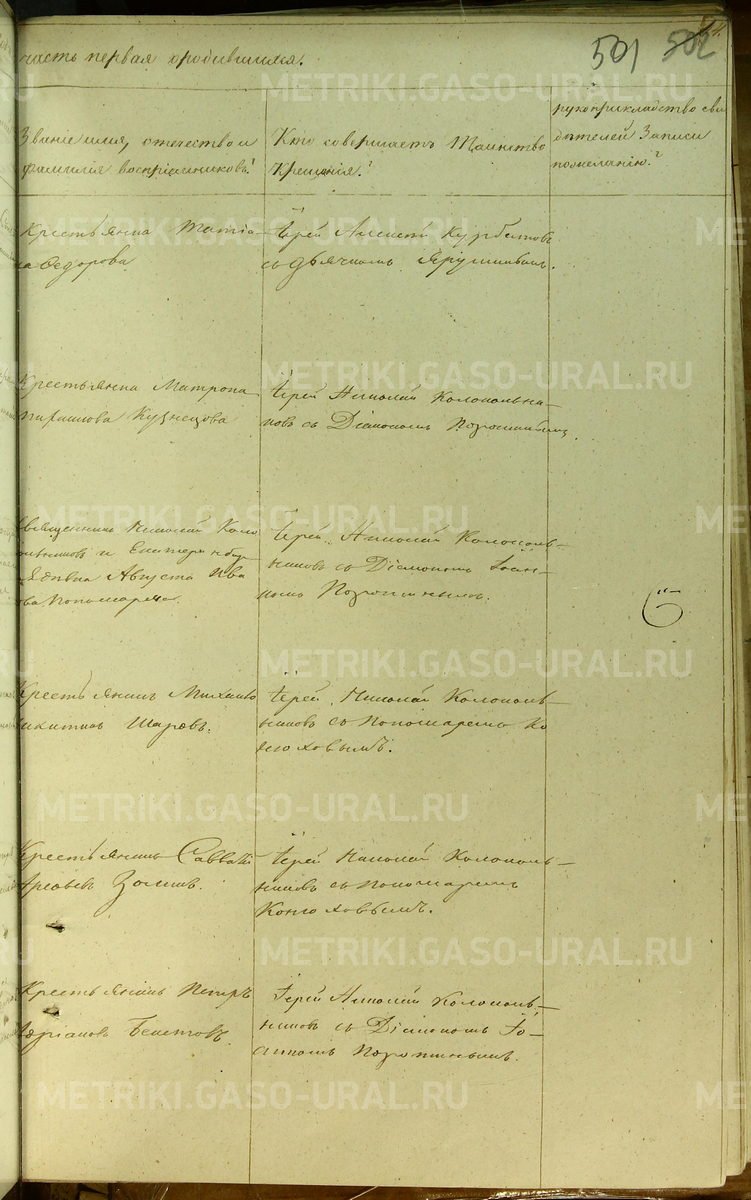 501 502
часть первая о родившихся.
Званiе имя, отечество и
фамилiя воспрiемниковъ?
Кто совершаетъ Таинство
Крещенiя?
рукоприкладство сви
дѣтелей Записи
по желанiю?
Крестьянка Татiа
на Ѳедорова
Iерей Алексѣй Курбатовъ
съ дьячкомъ
Крестьянка Матрона
Кузнецова
Iерей Николай Колокольни-
ковъ съ Дiакономъ Поротинымъ
Священникъ Николай Коло
кольниковъ и Екатеринбур
Августа Ива
Пономарева.
Iерей Николай Колоколь-
никовъ съ Дiакономъ Iоан-
номъ Поротинымъ.
Крестьянинъ Михаилъ
Никитинъ Шаровъ.
Iерей Николай Колоколь-
никовъ съ Пономаремъ Ко
нюховымъ.
Крестьянинъ Савватiй
Iерей Николай Колоколь-
никовъ съ Пономаремъ
Конюховымъ.
Крестьянинъ Петръ
Адрiановъ
Iерей Николай Колоколь-
никовъ съ Дiакономъ Iо-
анномъ Поротинымъ.
METRIKI.GASO-URAL.RU